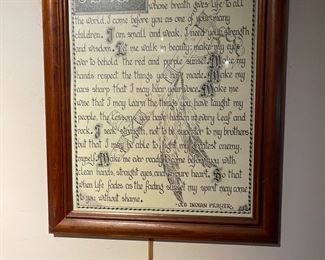 whose breath gives life to all
the world, I come before you as one of your many
children. I am small and weak. I need your strength
and wisdom. Let me walk in beauty; make my eyes
ever to behold the red and purple sunset. Make my
hands respect the things you have made. Make my
ears sharp that I may hear your voice. Make me
wise that I may learn the things you have taught my
people, the lesson you have hidden in every leaf and
rock. I seek strength, not to be superior to my brothers
but that I may be able to fight my greatest enemy,
myself. Make me ever ready to come before you with
clean hands, straight eyes, and a pure heart. So that
when life fades as the fading sunset my spirit may come
to you without shame.
-OLD INDIAN PRAYER